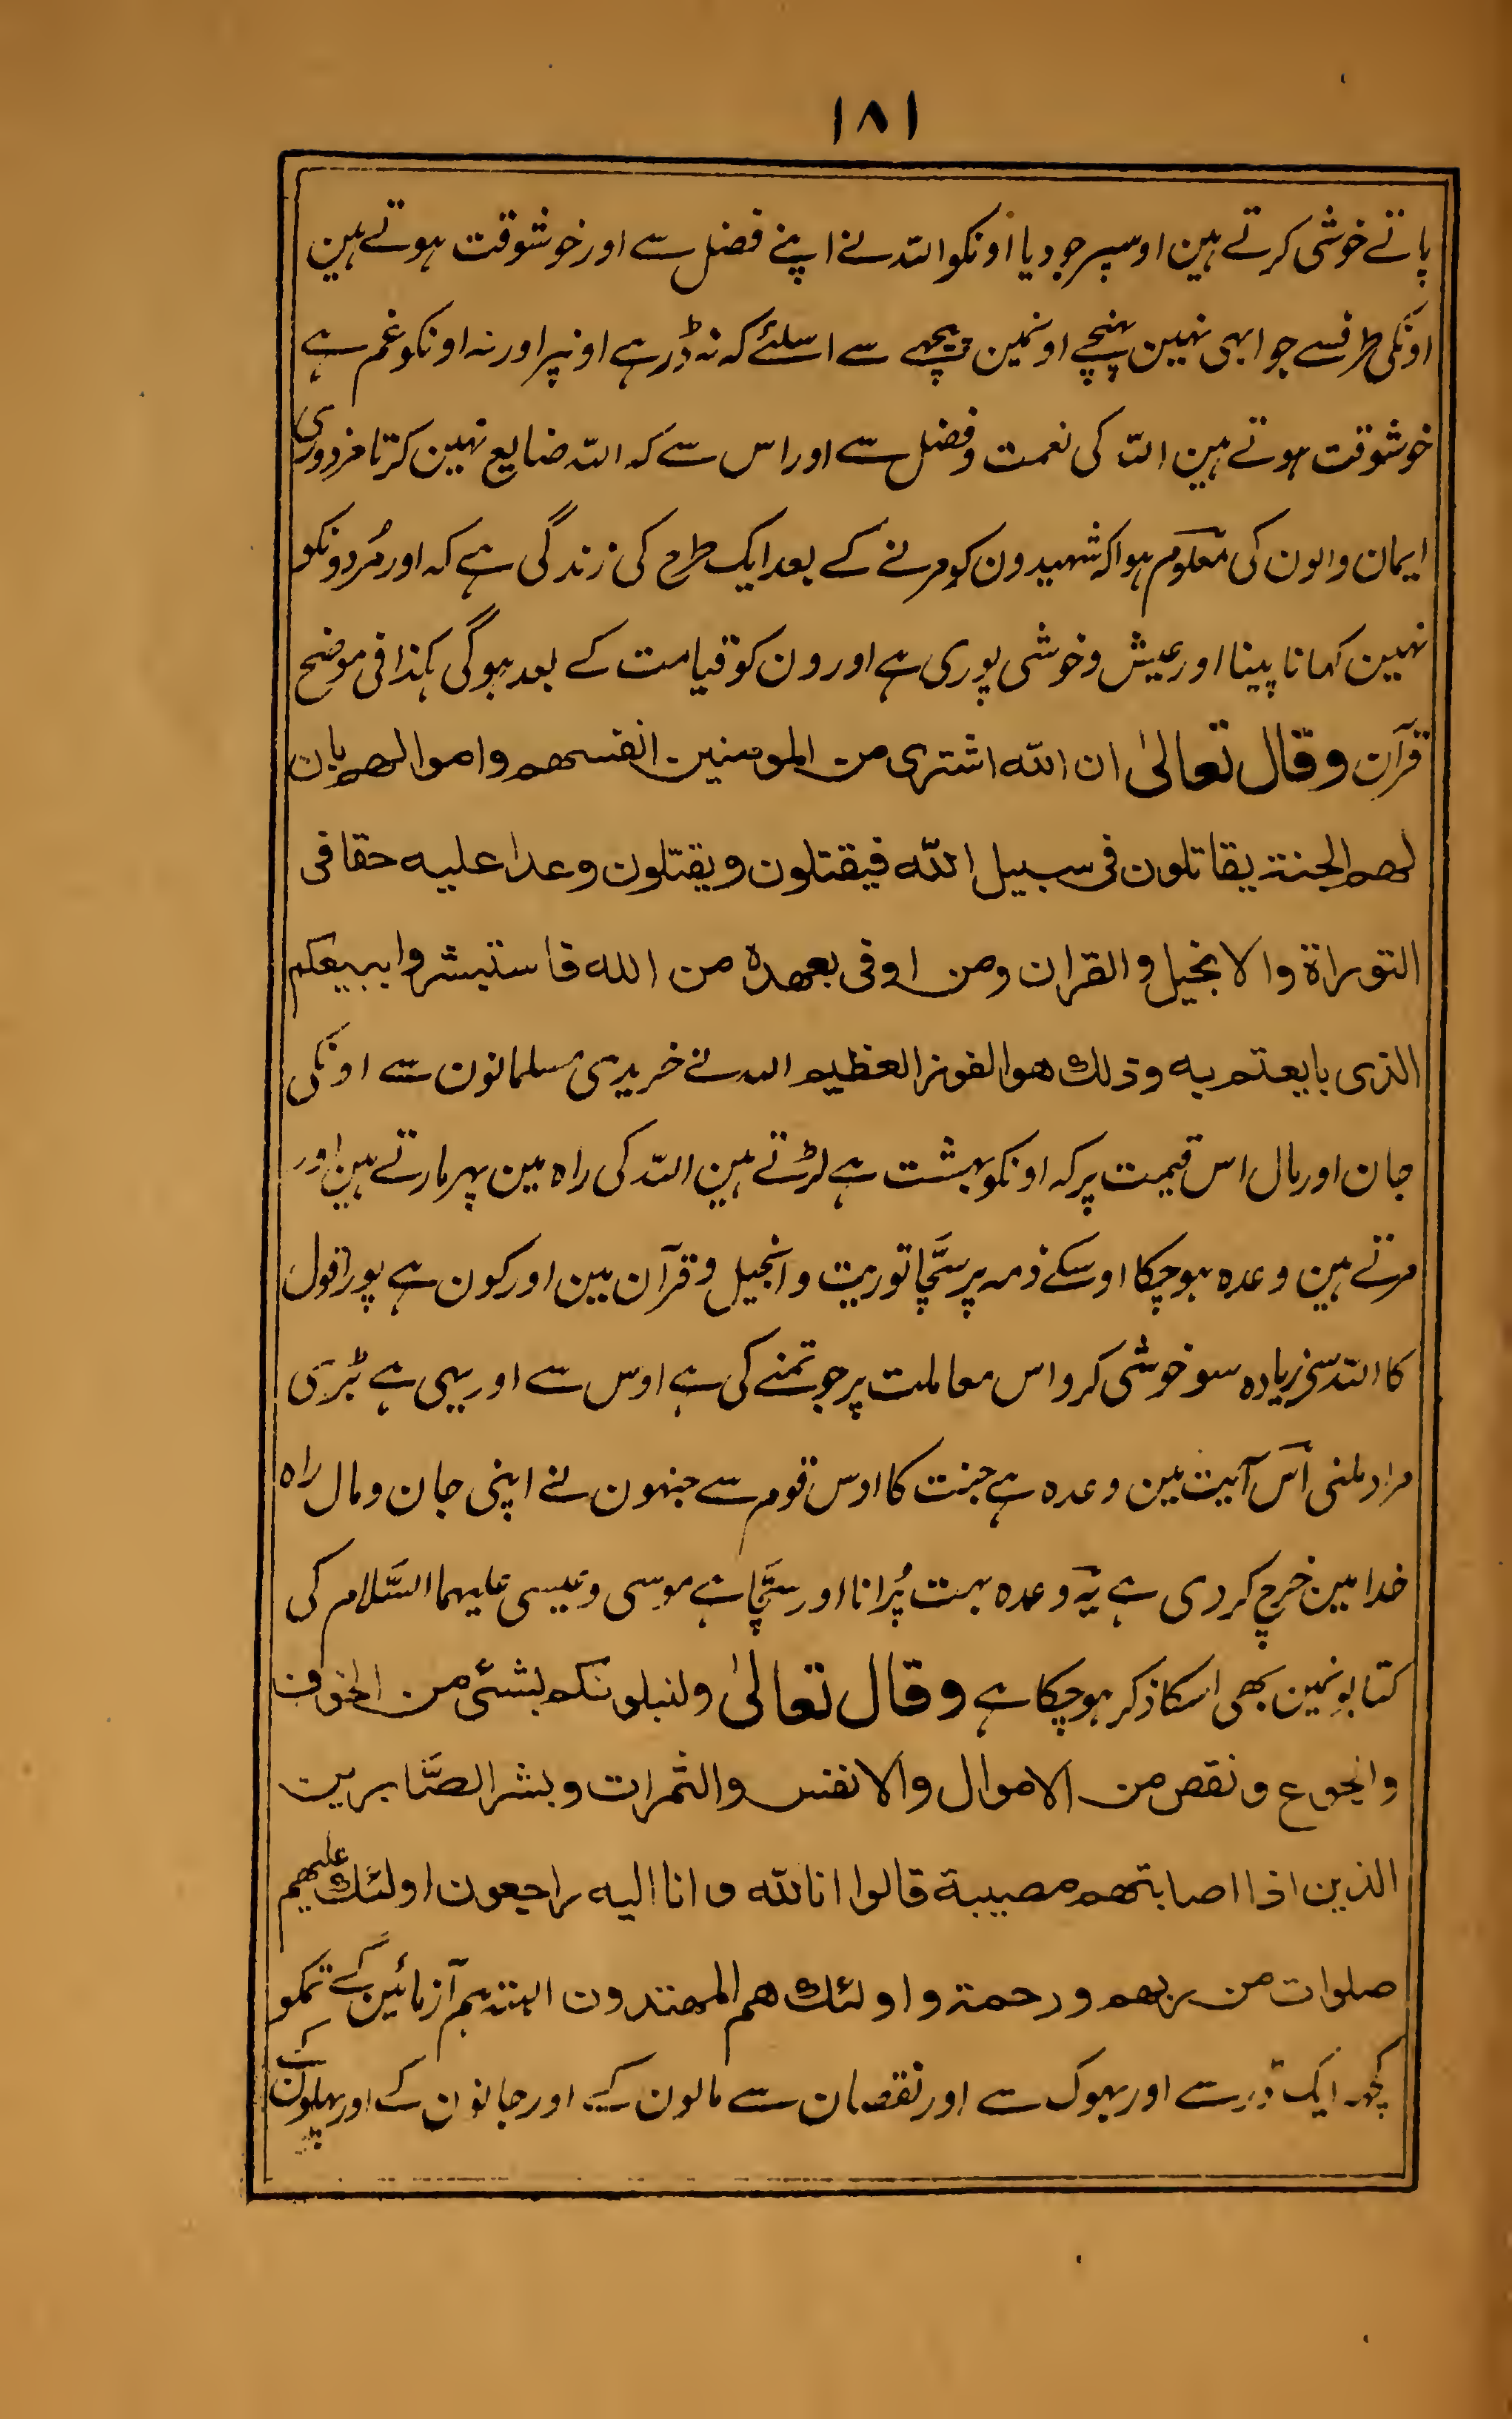 ۱۸۱
پاتے خوشی کرتے ہین اوسپر جو دیا اونکو اللہ نے اپنے فضل سے اور خوشوقت ہوتے ہین
اونکی طرفسے جو ابہی نہین پہنچے اونمین پیچہے سے اسلئے کہ نہ ڈر ہے اونپر اور نہ اونکو غم ہے
خوشوقت ہوتے ہین اللہ کی نعمت و فضل سے اور اس سے کہ اللہ ضایع نہین کرتا مزدوری
ایمان والون کی معلوم ہوا کہ شہیدون کو مرنے کے بعد ایک طرح کی زندگی ہے کہ اور مُردونکو
نہین کہانا پینا اور عیش و خوشی پوری ہے اورون کو قیامت کے بعد ہوگی ہکذا فی موضح
قرآن وقال تعالیٰ ان اللہ اشتری من المومنین انفسهم واموالهم بان
لهم الجنة یقاتلون فی سبیل اللہ فیقتلون ویقتلون وعدا علیه حقا فی
التوراة والانجیل والقران ومن اوفی بعهده من الله فاستبشروا ببیعکم
الذی بایعتم به وذلك هو الفوز العظیم اللہ نے خریدی مسلمانون سے اونکی
جان اور مال اس قیمت پر کہ اونکو بہشت ہے لڑتے ہین اللہ کی راہ مین پہر مارتے ہین اور
مرتے ہین وعدہ ہو چکا اوسکے ذمہ پر سچّا توریت و انجیل و قرآن مین اور کون ہے پورا قول
کا اللہ سے زیادہ سو خوشی کرو اس معاملت پر جو تمنے کی ہے اوس سے اور یہی ہے بڑی
مراد ملنی اس آیت مین وعدہ ہے جنت کا اوس قوم سے جنہون نے اپنی جان و مال راہ
خدا مین خرچ کر دی ہے یہ وعدہ بہت پُرانا اور سچّا ہے موسی و عیسی علیہما السَّلام کی
کتابونمین بھی اسکا ذکر ہو چکا ہے وقال تعالیٰ ولنبلونکم بشئی من الخوف
والجوع ونقص من الاموال والانفس والثمرات وبشر الصَّابرین
الذین اذا اصابتهم مصیبة قالوا انا للہ وانا الیه راجعون اولئك علیهم
صلوات من ربهم ورحمة واولئك هم المهتدون البتہ ہم آزمائین گے تمکو
کچہ ایک ڈر سے اور بہوک سے اور نقصان سے مالون کے اور جانون کے اور پہلون کے